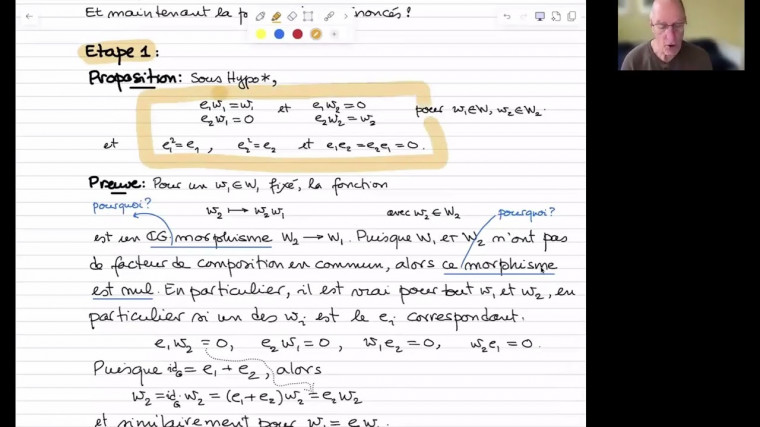 Et maintenant la énoncés?
Etape 1:
Proposition: Sous Hypo*,
e₁w₁=w₁ et e₁w₂=0
e₂w₁=0 e₂w₂=w₂ pour w₁∈W₁, w₂∈W₂.
et e₁²=e₁, e₂²=e₂ et e₁e₂=e₂e₁=0.
Preuve: Pour un w₁∈W₁ fixé, la fonction
pourquoi? w₂ ↦ w₂w₁ avec w₂∈W₂ pourquoi?
est un ℂG-morphisme W₂→W₁. Puisque W₁ et W₂ n'ont pas
de facteur de composition en commun, alors ce morphisme
est nul. En particulier, il est vrai pour tout w₁ et w₂, en
particulier si un des wᵢ est le eᵢ correspondant.
e₁w₂=0, e₂w₁=0, w₁e₂=0, w₂e₁=0.
Puisque id_G=e₁+e₂, alors
w₂=id_G·w₂=(e₁+e₂)w₂=e₂w₂
et similairement pour